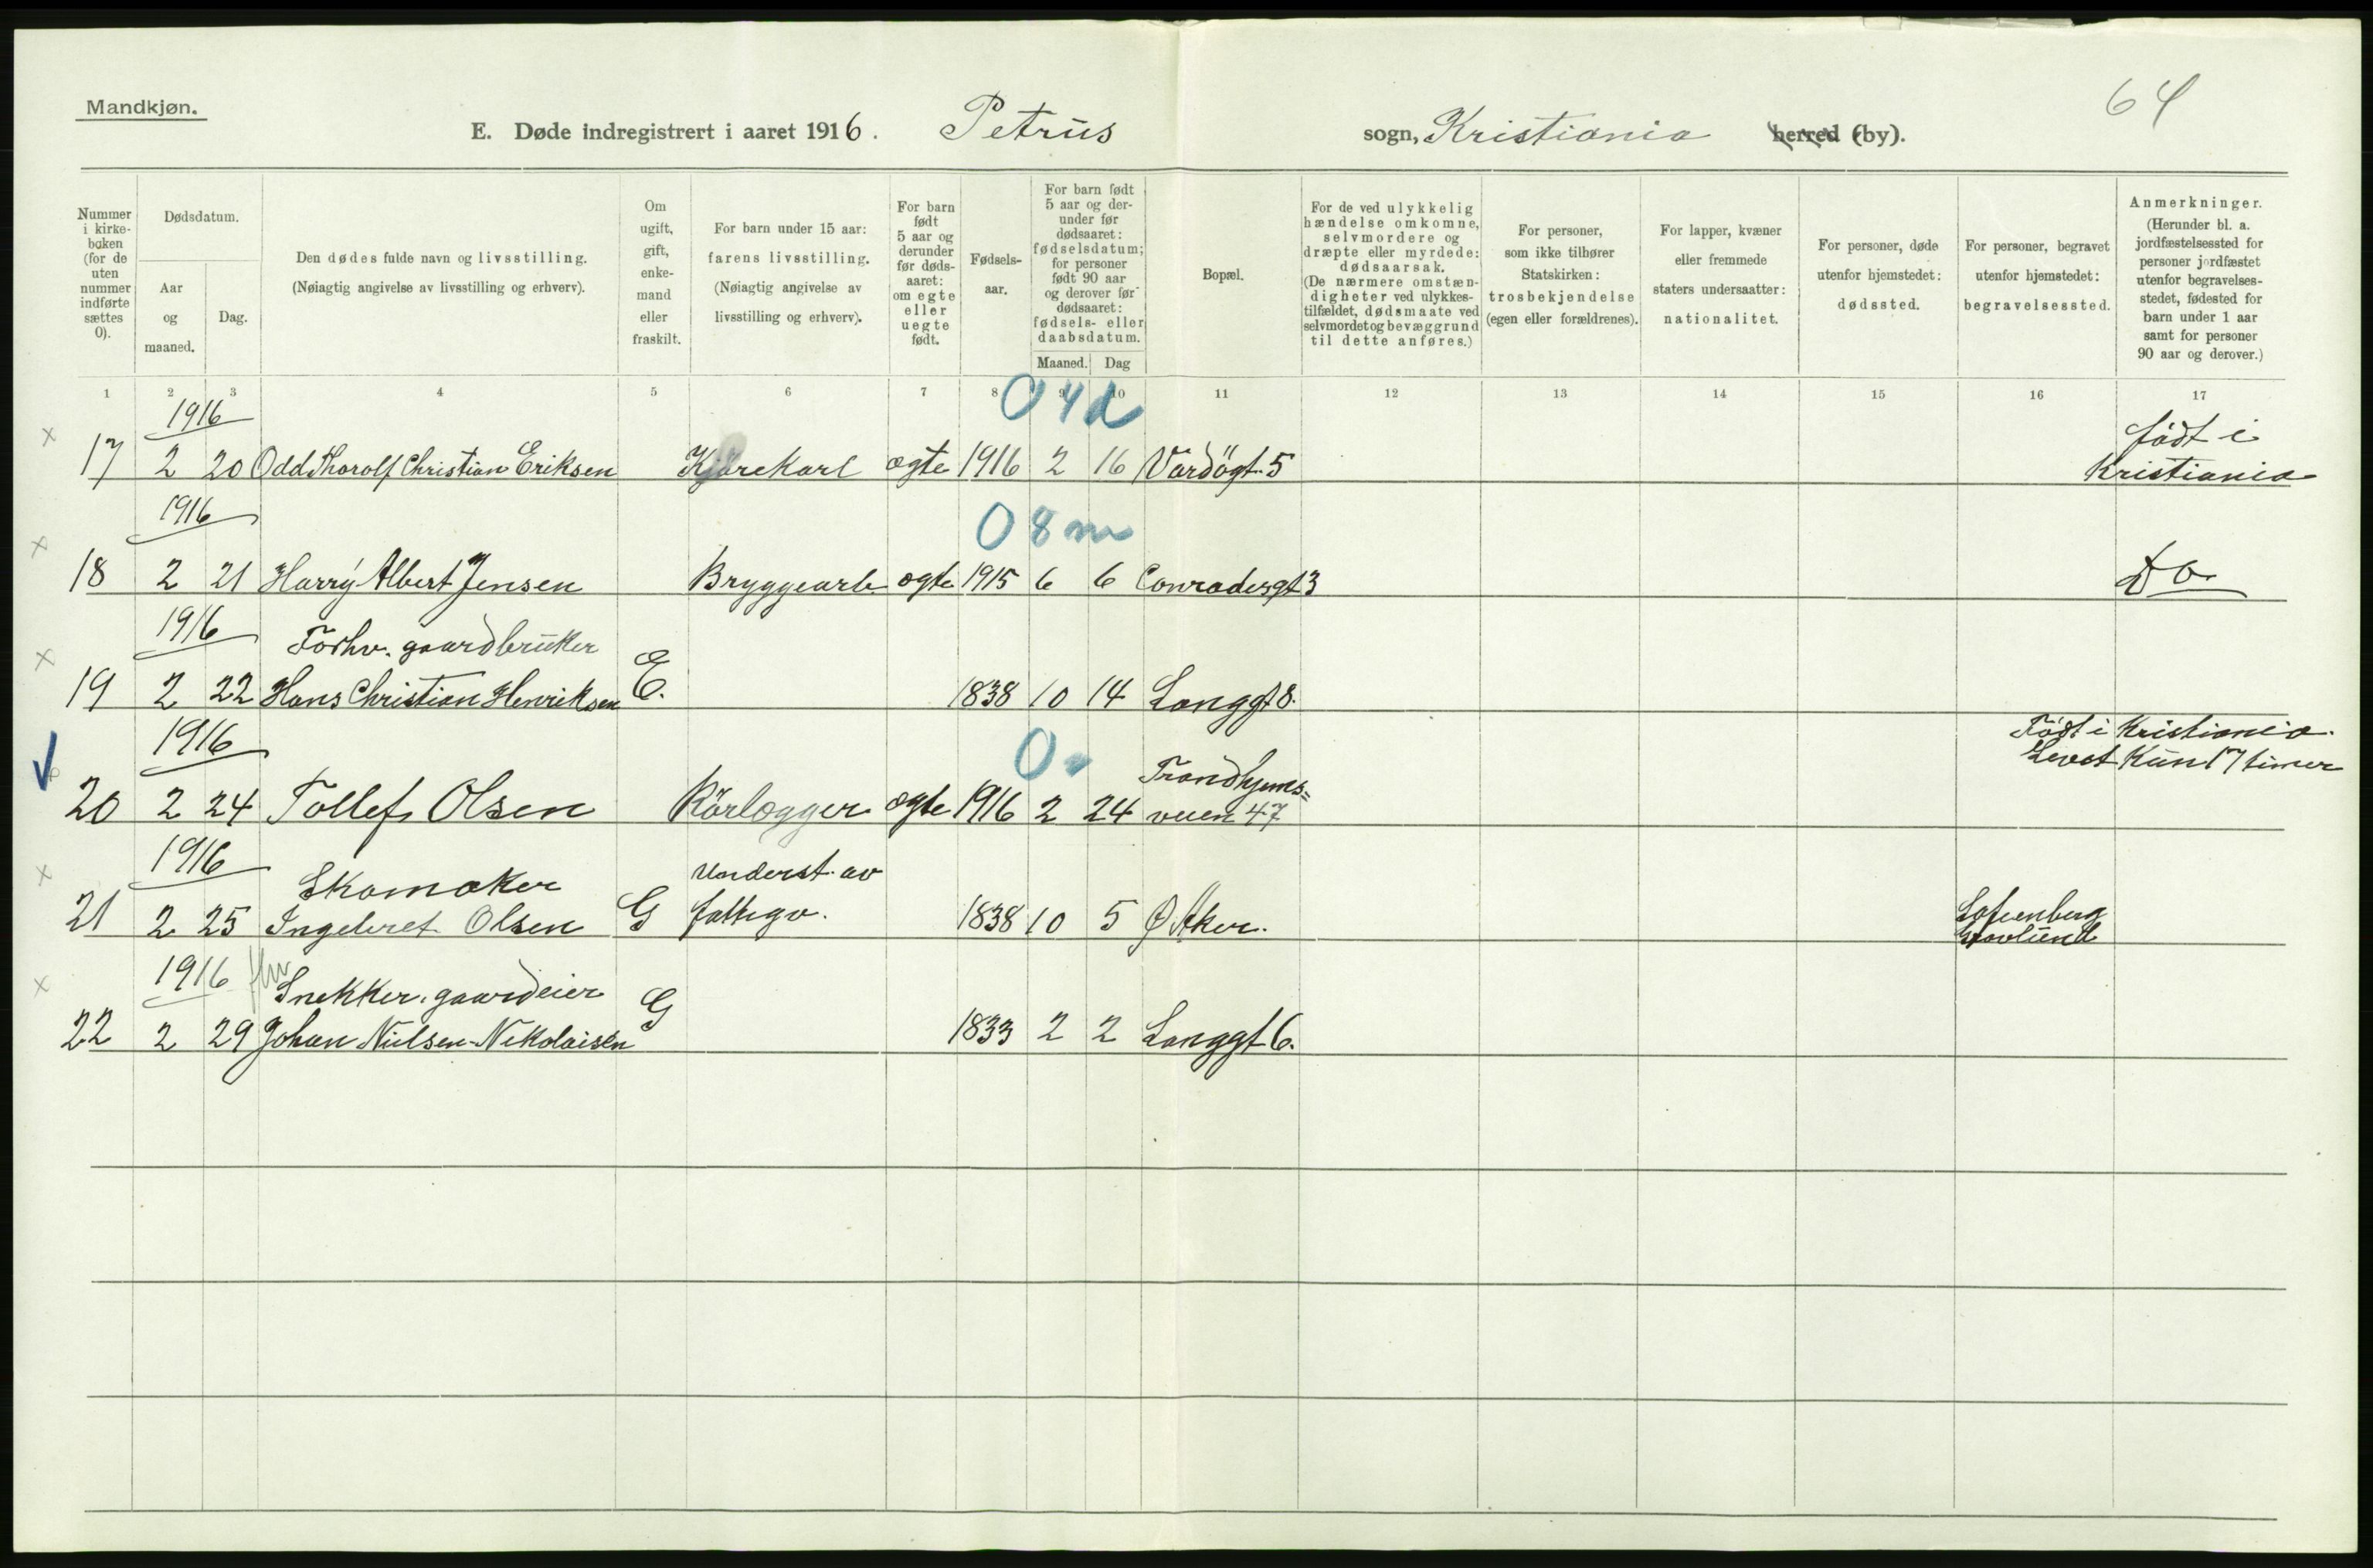 64
Mandkjøn.
E. Døde indregistrert i aaret 1916. Petrus sogn, Kristiania herred (by).
Nummer i kirkeboken (for de uten nummer indførte sættes 0).
Dødsdatum.
Aar og maaned.
Dag.
Den dødes fulde navn og livsstilling.
(Nøiagtig angivelse av livsstilling og erhverv).
Om ugift, gift, enkemand eller fraskilt.
For barn under 15 aar: farens livsstilling.
(Nøiagtig angivelse av livsstilling og erhverv).
For barn født 5 aar og derunder før dødsaaret: om egte eller uegte født.
Fødsels-aar.
For barn født 5 aar og derunder før dødsaaret: fødselsdatum; for personer født 90 aar og derover før dødsaaret: fødsels- eller daabsdatum.
Maaned. Dag
Bopæl.
For de ved ulykkelig hændelse omkomne, selvmordere og dræpte eller myrdede: dødsaarsak.
(De nærmere omstændigheter ved ulykkestilfældet, dødsmaate ved selvmordet og bevæggrund til dette anføres.)
For personer, som ikke tilhører Statskirken: trosbekjendelse (egen eller forældrenes).
For lapper, kvæner eller fremmede staters undersaatter: nationalitet.
For personer, døde utenfor hjemstedet: dødssted.
For personer, begravet utenfor hjemstedet: begravelsessted.
Anmerkninger.
(Herunder bl. a. jordfæstelsessted for personer jordfæstet utenfor begravelsesstedet, fødested for barn under 1 aar samt for personer 90 aar og derover.)
1 2 3 4 5 6 7 8 9 10 11 12 13 14 15 16 17
1916 0 4 d født i
17 2 20 Odd Thorolf Christian Eriksen Kjørekarl ægte 1916 2 16 Vardøgt. 5 Kristiania
1916 0 8 m
18 2 21 Harry Albert Jensen Bryggearb ægte 1915 6 6 Conradisgt 3 Do
1916 Forhv. gaardbruker
19 2 22 Hans Christian Henriksen E. 1838 10 14 Langgt 8.
1916 0 Trondhjems= Født i Kristiania. Levet kun 17 timer
20 2 24 Tollef Olsen Rørlægger ægte 1916 2 24 veien 47
1916 Skomaker Underst. av
21 2 25 Ingebret Olsen G fattigv. 1838 10 5 Ø Aker. Sofienberg Gravlund
1916 fhv Snekker, gaardeier
22 2 29 Johan Nielsen-Nikolaisen G 1833 2 2 Langgt 6.